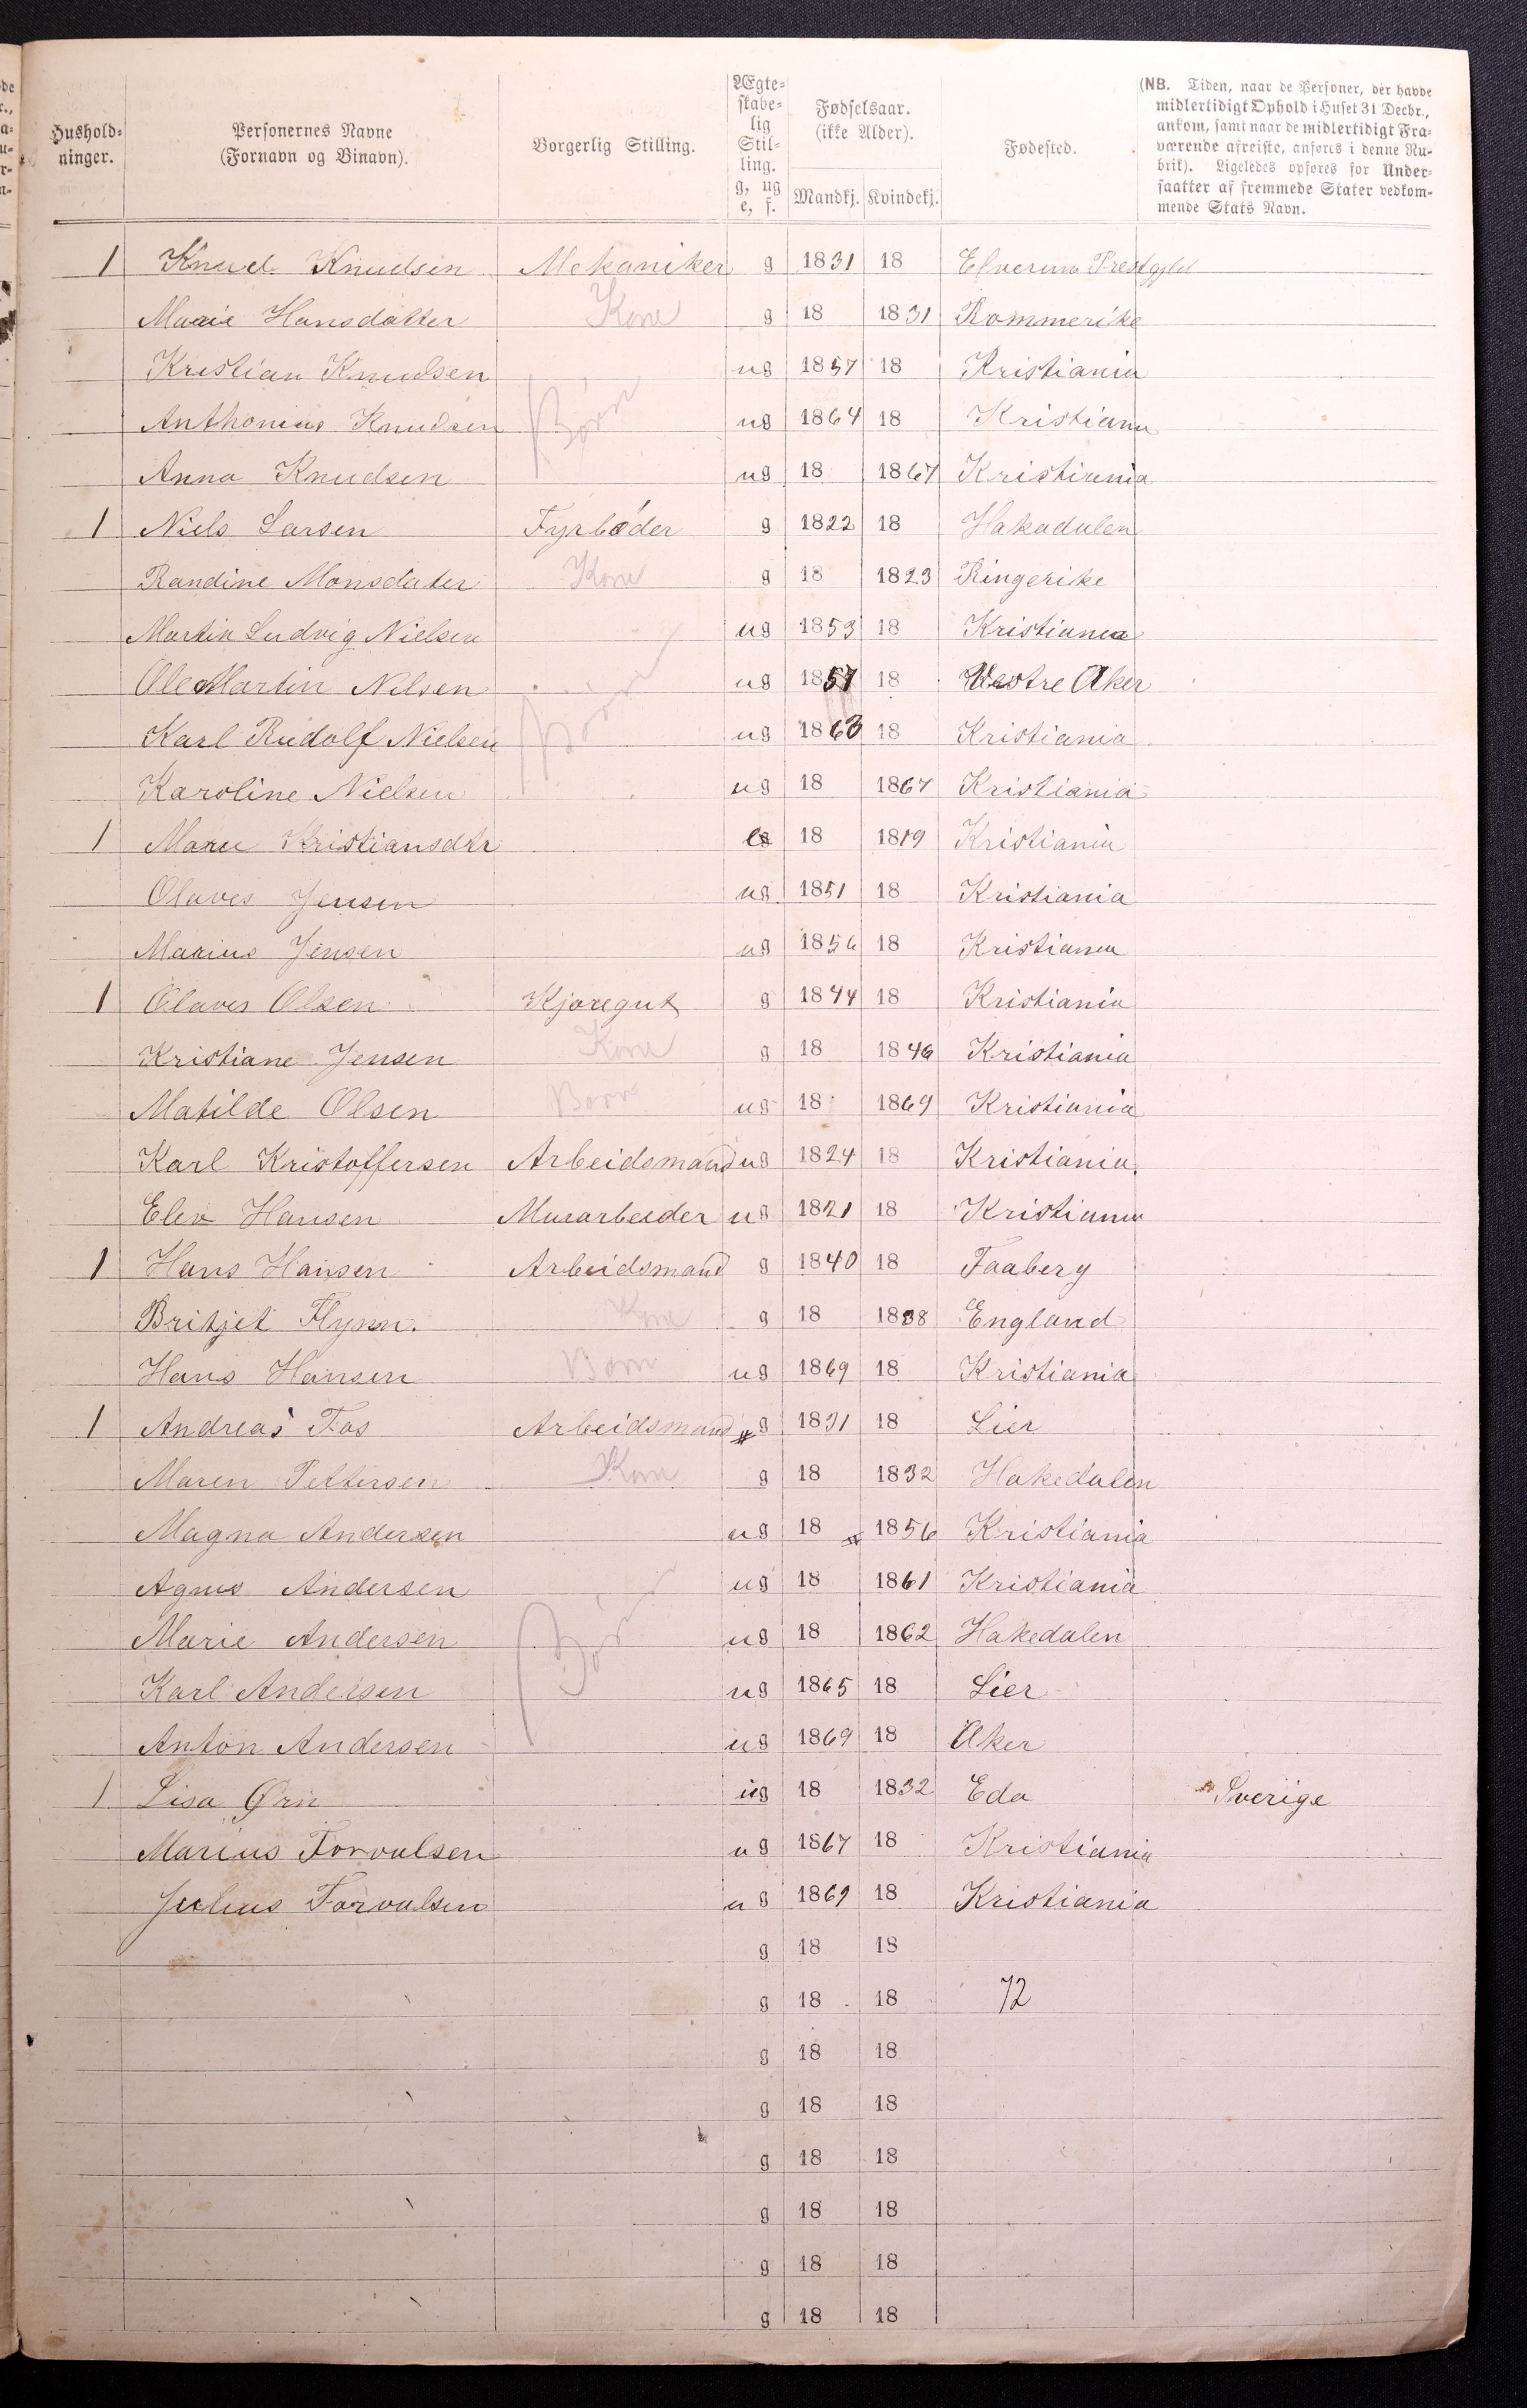 Hushold-
ninger.
Personernes Navne
(Fornavn og Binavn).
Borgerlig Stilling.
Ægte-
skabe-
lig
Stil-
ling.
g, ug
e, f.
Fødselsaar.
(ikke Alder).
Mandkj. Kvindekj.
Fødested.
(NB. Tiden, naar de Personer, der havde
midlertidigt Ophold i Huset 31 Decbr.,
ankom, samt naar de midlertidigt Fra-
værende afreiste, anføres i denne Ru-
brik). Ligeledes opføres for Under-
saatter af fremmede Stater vedkom-
mende Stats Navn.
1 Knud Knudsen Mekaniker g 1831 18 Elverum Prestgjld
Marie Hansdatter Kone g 18 1831 Rommerike
Kristian Knudsen ug 1857 18 Kristiania
Anthonius Knudsen Børn ug 1864 18 Kristiania
Anna Knudsen ug 18 1867 Kristiania
1 Niels Larsen Fyrbøder g 1822 18 Hakadalen
Randine Monsdater Kone g 18 1823 Ringerike
Martin Ludvig Nielsen ug 1853 18 Kristiania
Ole Martin Nilsen Børn ug 1857 18 Vestre Aker
Karl Rudolf Nielsen ug 1863 18 Kristiania
Karoline Nielsen ug 18 1867 Kristiania
1 Maren Kristiansdtr e 18 1819 Kristiania
Olaves Jensen ug 1851 18 Kristiania
Marius Jensen ug 1856 18 Kristiania
1 Olaves Olsen Kjøregut g 1844 18 Kristiania
Kristiane Jensen Kone g 18 1846 Kristiania
Matilde Olsen Barn ug 18 1869 Kristiania
Karl Kristoffersen Arbeidsmand ug 1824 18 Kristiania
Elev Hansen Murarbeider ug 1821 18 Kristiania
1 Hans Hansen Arbeidsmand g 1840 18 Faaberg
Britjet Flynn. Kone g 18 1838 England
Hans Hansen Barn ug 1869 18 Kristiania
1 Andreas Fos Arbeidsmand g 1831 18 Lier
Maren Pettersen Kone g 18 1832 Hakedalen
Magna Andersen ug 18 1856 Kristiania
Agnes Andersen ug 18 1861 Kristiania
Marie Andersen Børn ug 18 1862 Hakedalen
Karl Andersen ug 1865 18 Lier
Anton Andersen ug 1869 18 Aker
1 Lisa Ørn ug 18 1832 Eda Sverige
Marius Torvalsen ug 1867 18 Kristiania
Julius Torvalsen ug 1869 18 Kristiania
g 18 18
g 18 18 72
g 18 18
g 18 18
g 18 18
g 18 18
g 18 18
g 18 18